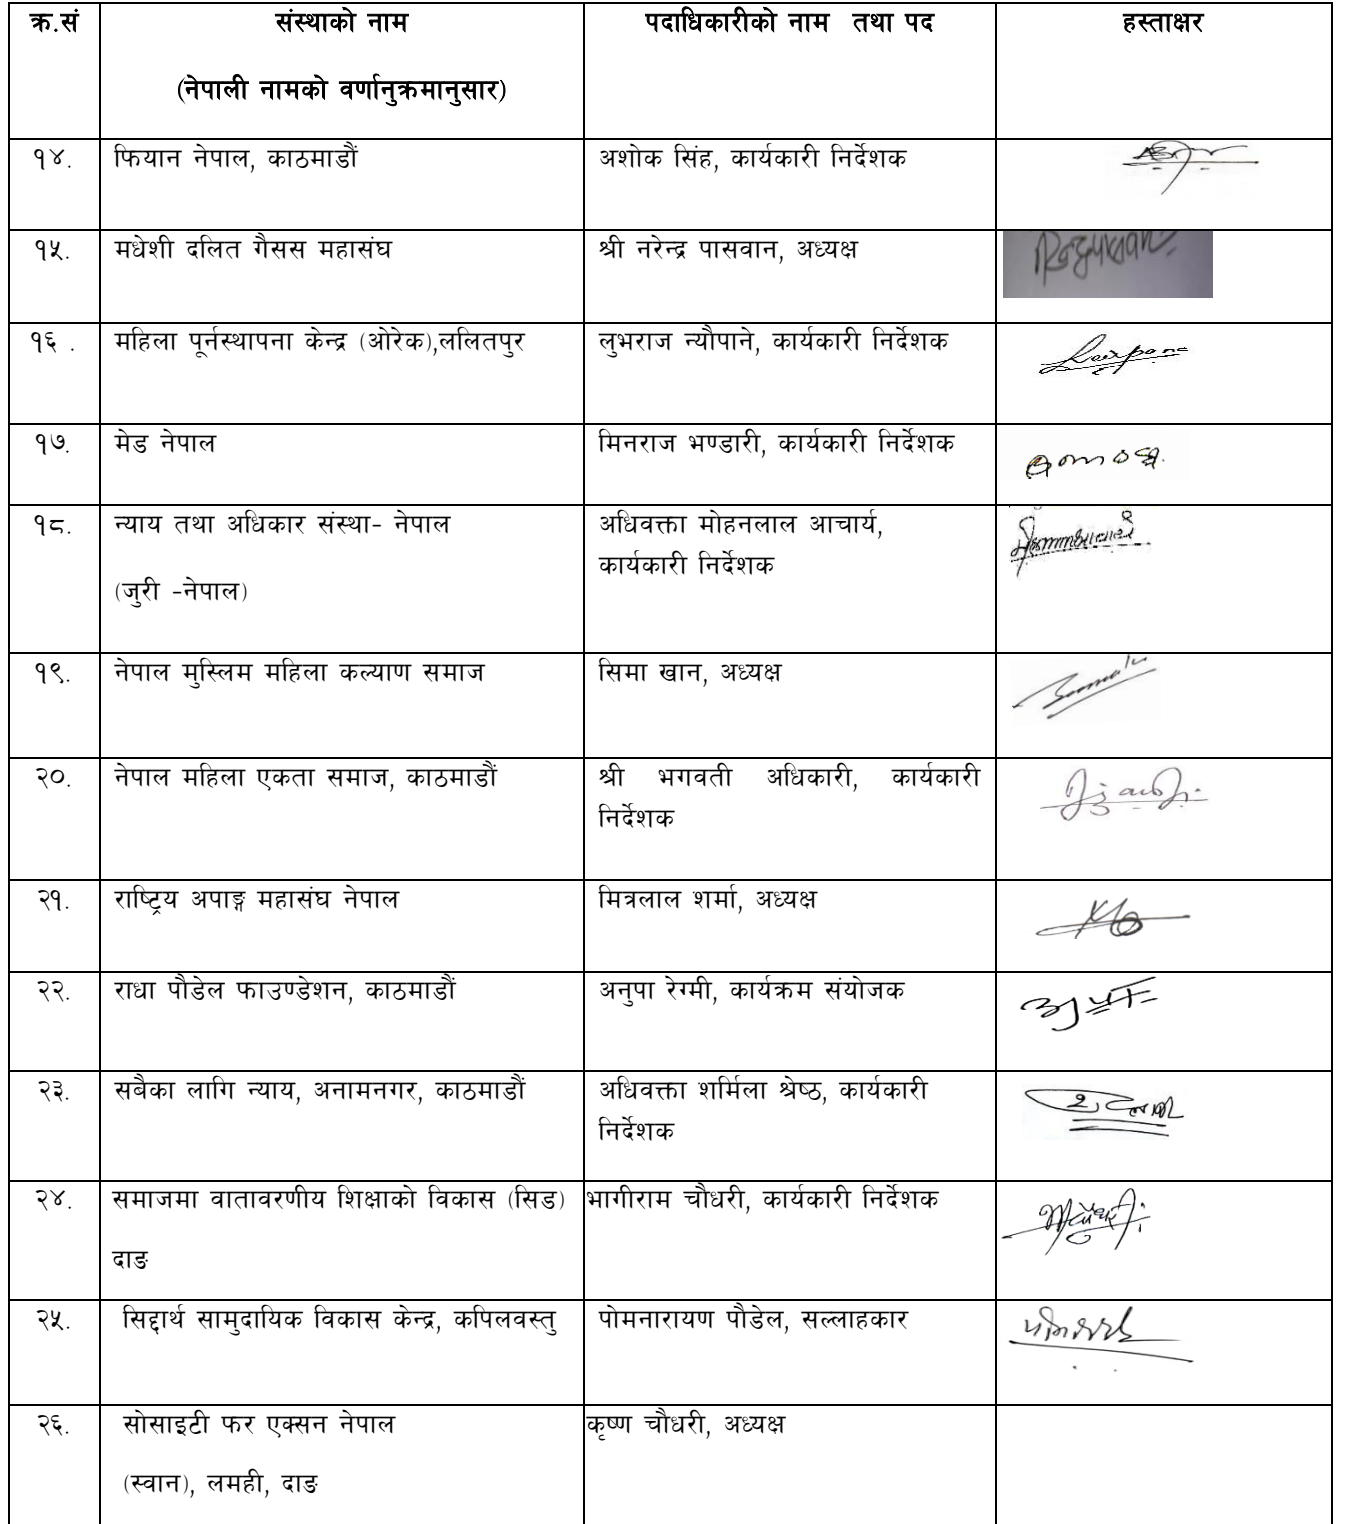 क्र.सं संस्थाको नाम पदाधिकारीको नाम तथा पद हस्ताक्षर
(नेपाली नामको वर्णानुक्रमानुसार)
१४. फियान नेपाल, काठमाडौं अशोक सिंह, कार्यकारी निर्देशक
१५. मधेशी दलित गैसस महासंघ श्री नरेन्द्र पासवान, अध्यक्ष
१६ . महिला पूर्नस्थापना केन्द्र (ओरेक),ललितपुर लुभराज न्यौपाने, कार्यकारी निर्देशक
१७. मेड नेपाल मिनराज भण्डारी, कार्यकारी निर्देशक
१८. न्याय तथा अधिकार संस्था- नेपाल अधिवक्ता मोहनलाल आचार्य,
कार्यकारी निर्देशक
(जुरी -नेपाल)
१९. नेपाल मुस्लिम महिला कल्याण समाज सिमा खान, अध्यक्ष
२०. नेपाल महिला एकता समाज, काठमाडौं श्री भगवती अधिकारी, कार्यकारी
निर्देशक
२१. राष्ट्रिय अपाङ्ग महासंघ नेपाल मित्रलाल शर्मा, अध्यक्ष
२२. राधा पौडेल फाउण्डेशन, काठमाडौं अनुपा रेग्मी, कार्यक्रम संयोजक
२३. सबैका लागि न्याय, अनामनगर, काठमाडौं अधिवक्ता शर्मिला श्रेष्ठ, कार्यकारी
निर्देशक
२४. समाजमा वातावरणीय शिक्षाको विकास (सिड) भागीराम चौधरी, कार्यकारी निर्देशक
दाङ
२५. सिद्दार्थ सामुदायिक विकास केन्द्र, कपिलवस्तु पोमनारायण पौडेल, सल्लाहकार
२६. सोसाइटी फर एक्सन नेपाल कृष्ण चौधरी, अध्यक्ष
(स्वान), लमही, दाङ